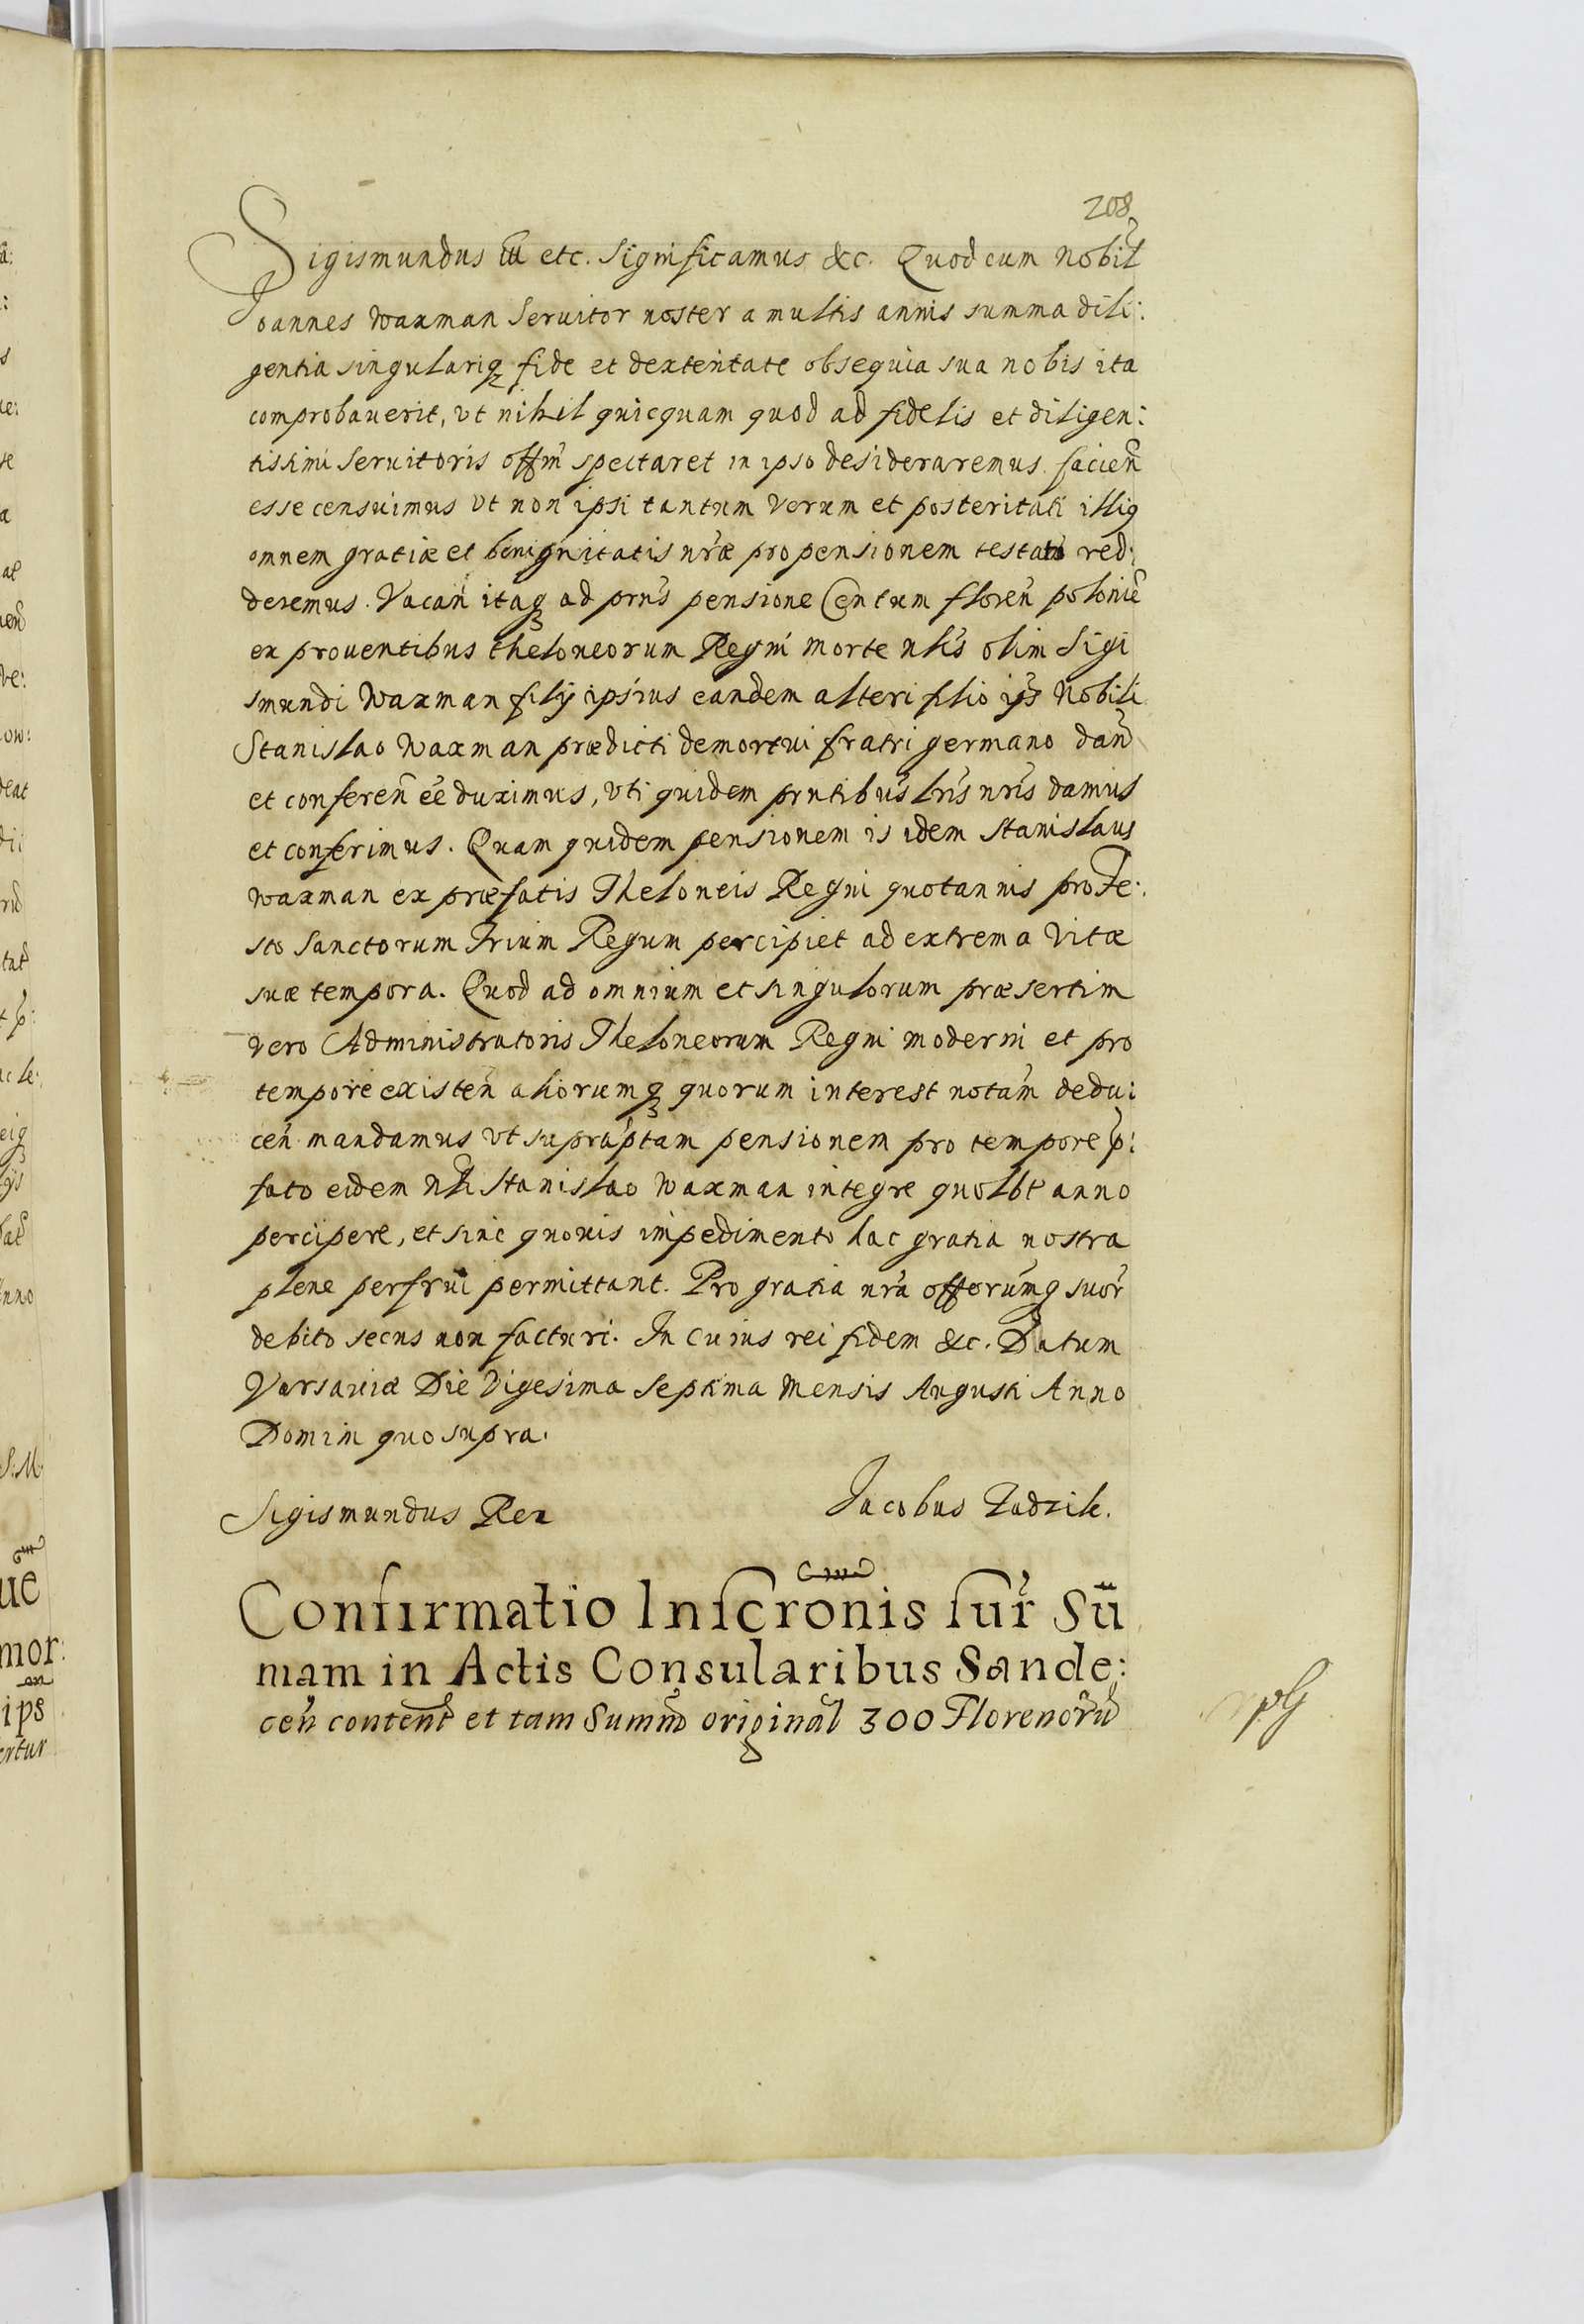 208
Sigismundus III etc. Significamus &c. Quod cum Nobil
Joannes Waxman Seruitor noster a multis annis summa dili:
gentia singulariq fide et dexteritate obsequia sua nobis ita
comprobauerit, vt nihil quicquam quod ad fidelis et diligen:
tissimi Seruitoris offm spectaret in ipso desideraremus. facien
esse censuimus vt non ipsi tantum verum et posteritati illiq
omnem gratiæ et benignitatis nræ propensionem testat red:
deremus. Vacan itaq ad prns pensione Centum floren polonie
ex prouentibus theloneorum Regni morte nlis olim Sigi
smundi Waxman filij ipsius eandem alteri filio ips Nobili
Stanislao Waxman prædicti demortui fratri germano dan
et conferen eē duximus, vti quidem prntibus lris nris damus
et conferimus. Quam quidem pensionem is idem Stanislaus
Waxman ex præfatis Theloneis Regni quotannis pro Fe:
sto Sanctorum Trium Regum percipiet ad extrema vitæ
suæ tempora. Quod ad omnium et singulorum præsertim
vero Administratoris Theloneorum Regni moderni et pro
tempore existen aliorumq quorum interest notam dedu:
cen mandamus vt supraptam pensionem pro tempore p:
fato eidem Nli Stanislao Waxman integre quolbt anno
percipere, et sine quouis impedimento hac gratia nostra
plene perfrui permittant. Pro gratia nra offorumq suor
debito secus non facturi. In cuius rei fidem &c. Datum
Varsauiæ Die Vigesima Septima Mensis Augusti Anno
Domini quo supra.
Sigismundus Rex Jacobus Zadzik.
Confirmatio Inscronis sur Sū
mam in Actis Consularibus Sande:
cen content et tam Summ original 300 Florenoru